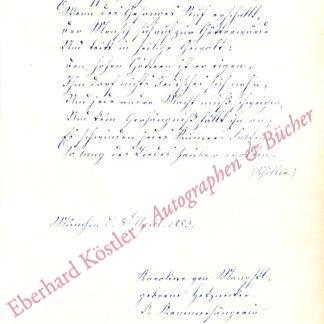 Wenn des Gesanges Ruf erschallt,
der Mensch sich auf zur Geisterwürde
Und tritt in heilige Gewalt:
den hohen Göttern ist er eigen,
Ihm darf nichts Irdisches sich nah'n,
Und jede andre Macht muß schweigen,
Und kein Verhängniß fällt ihn an;
Es schwinden jedes Kummers Falten
So lang des Liedes Zauber walten.
(Schiller)
München d. April 1883.
Karoline von Mangstl,
geborne Hetznecker
K. Kammersängerin
Eberhard Köstler Autographen & Bücher